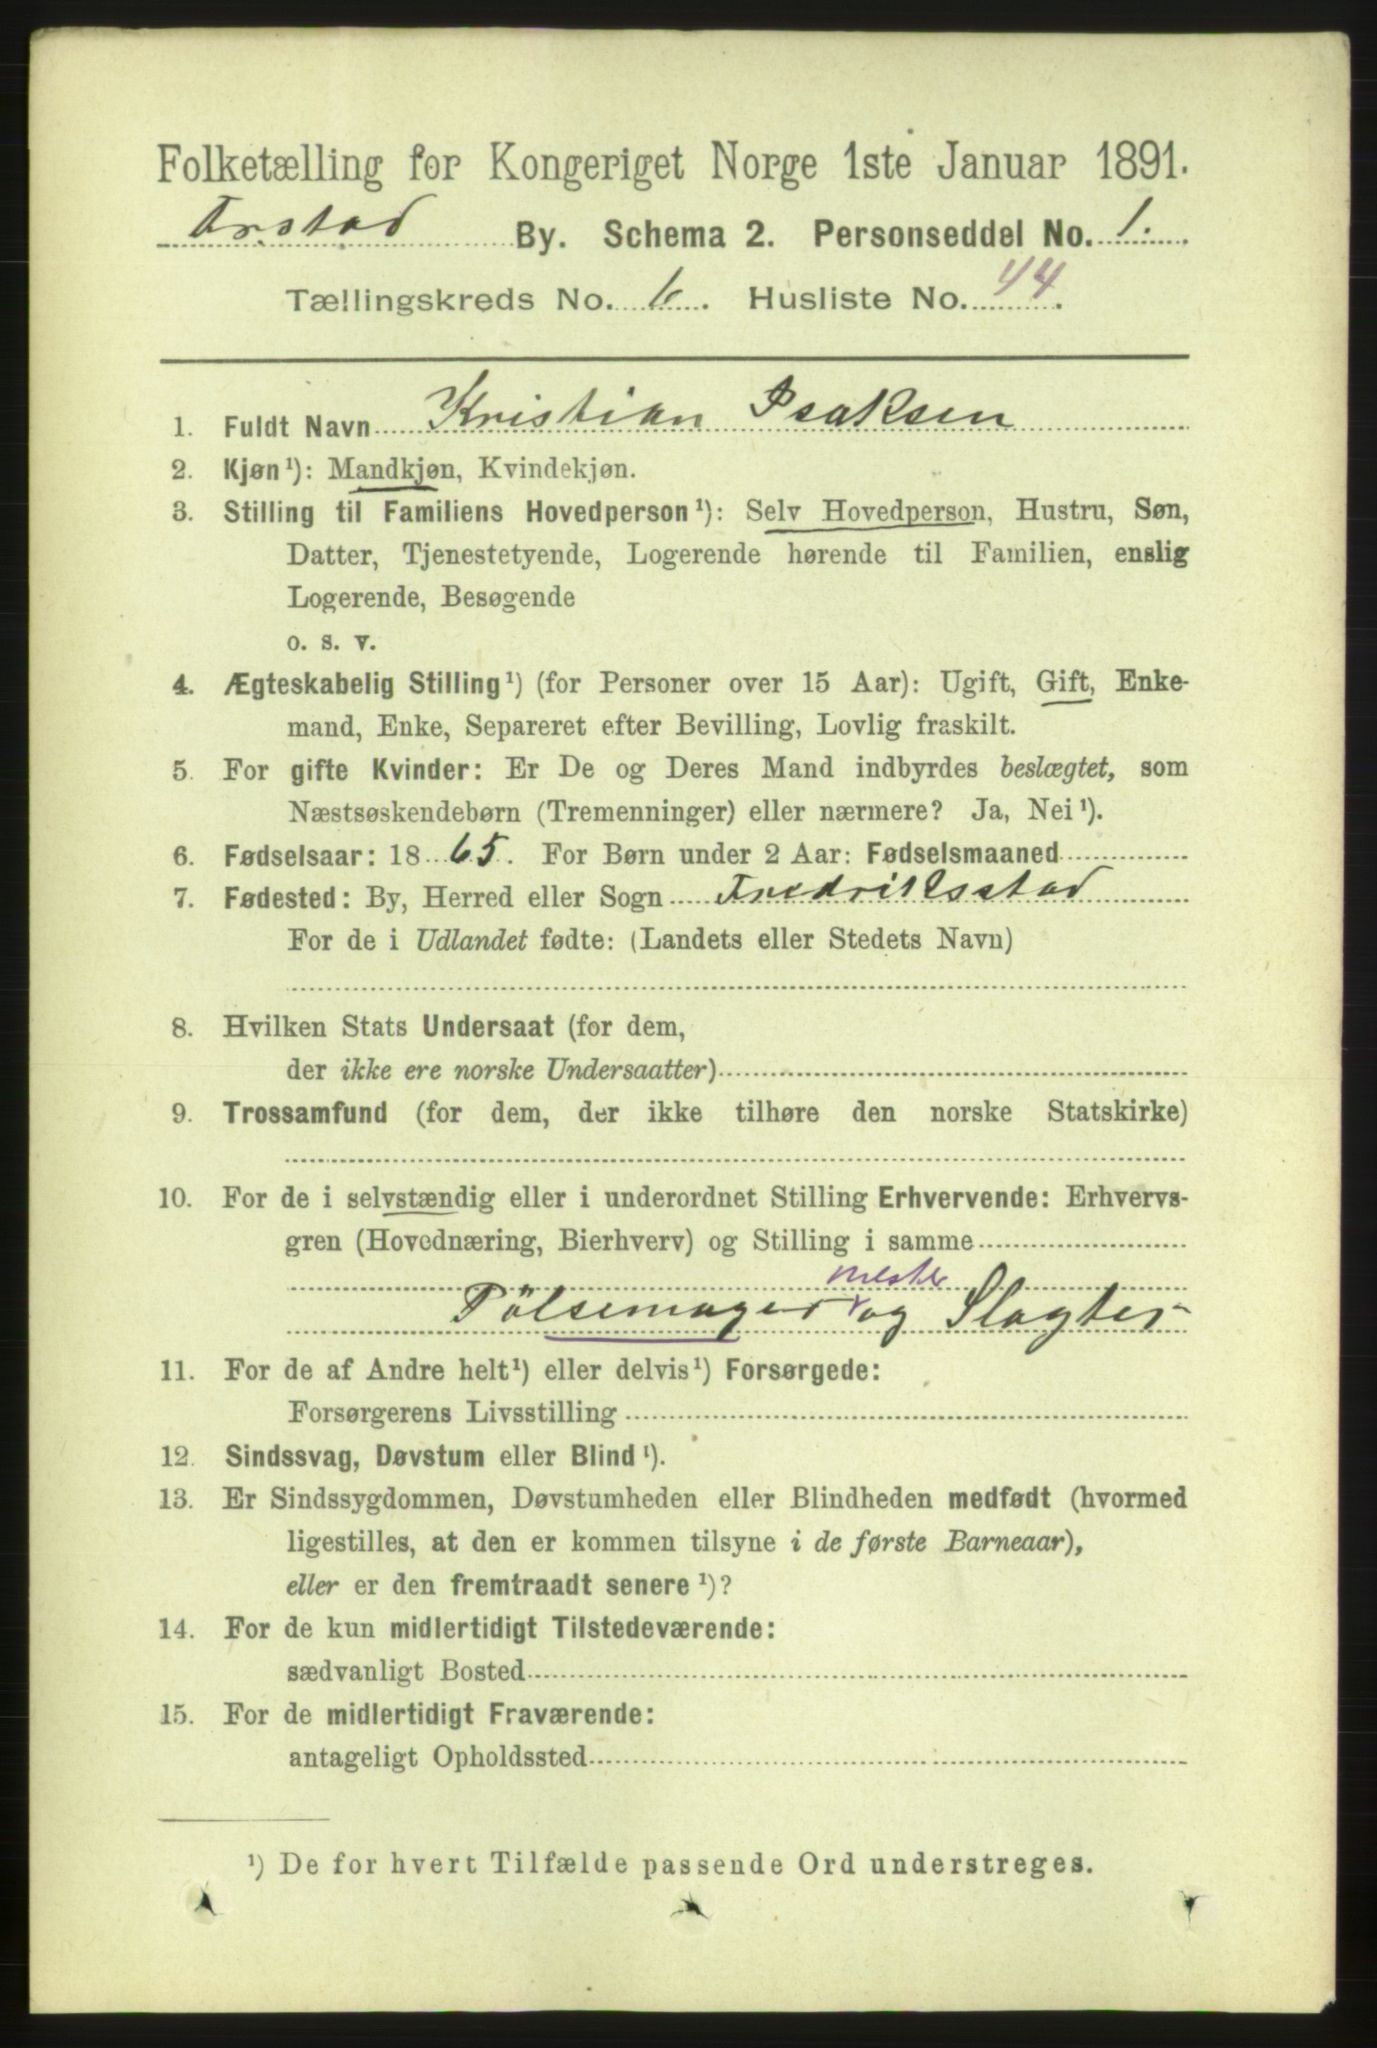 Folketælling for Kongeriget Norge 1ste Januar 1891.
By. Schema 2. Personseddel No. 1.
Tællingskreds No. 6. Husliste No. 44.
1. Fuldt Navn Kristian Isaksen
2. Kjøn¹): Mandkjøn, Kvindekjøn.
3. Stilling til Familiens Hovedperson¹): Selv Hovedperson, Hustru, Søn,
Datter, Tjenestetyende, Logerende hørende til Familien, enslig
Logerende, Besøgende
o. s. v.
4. Ægteskabelig Stilling¹) (for Personer over 15 Aar): Ugift, Gift, Enke-
mand, Enke, Separeret efter Bevilling, Lovlig fraskilt.
5. For gifte Kvinder: Er De og Deres Mand indbyrdes beslægtet, som
Næstsøskendebørn (Tremenninger) eller nærmere? Ja, Nei¹).
6. Fødselsaar: 1865. For Børn under 2 Aar: Fødselsmaaned
7. Fødested: By, Herred eller Sogn Fredriksstad
For de i Udlandet fødte: (Landets eller Stedets Navn)
8. Hvilken Stats Undersaat (for dem,
der ikke ere norske Undersaatter)
9. Trossamfund (for dem, der ikke tilhøre den norske Statskirke)
10. For de i selvstændig eller i underordnet Stilling Erhvervende: Erhvervs-
gren (Hovednæring, Bierhverv) og Stilling i samme
mester
Pölsemager og Slagter
11. For de af Andre helt¹) eller delvis¹) Forsørgede:
Forsørgerens Livsstilling
12. Sindssvag, Døvstum eller Blind¹).
13. Er Sindssygdommen, Døvstumheden eller Blindheden medfødt (hvormed
ligestilles, at den er kommen tilsyne i de første Barneaar),
eller er den fremtraadt senere¹)?
14. For de kun midlertidigt Tilstedeværende:
sædvanligt Bosted
15. For de midlertidigt Fraværende:
antageligt Opholdssted
¹) De for hvert Tilfælde passende Ord understreges.